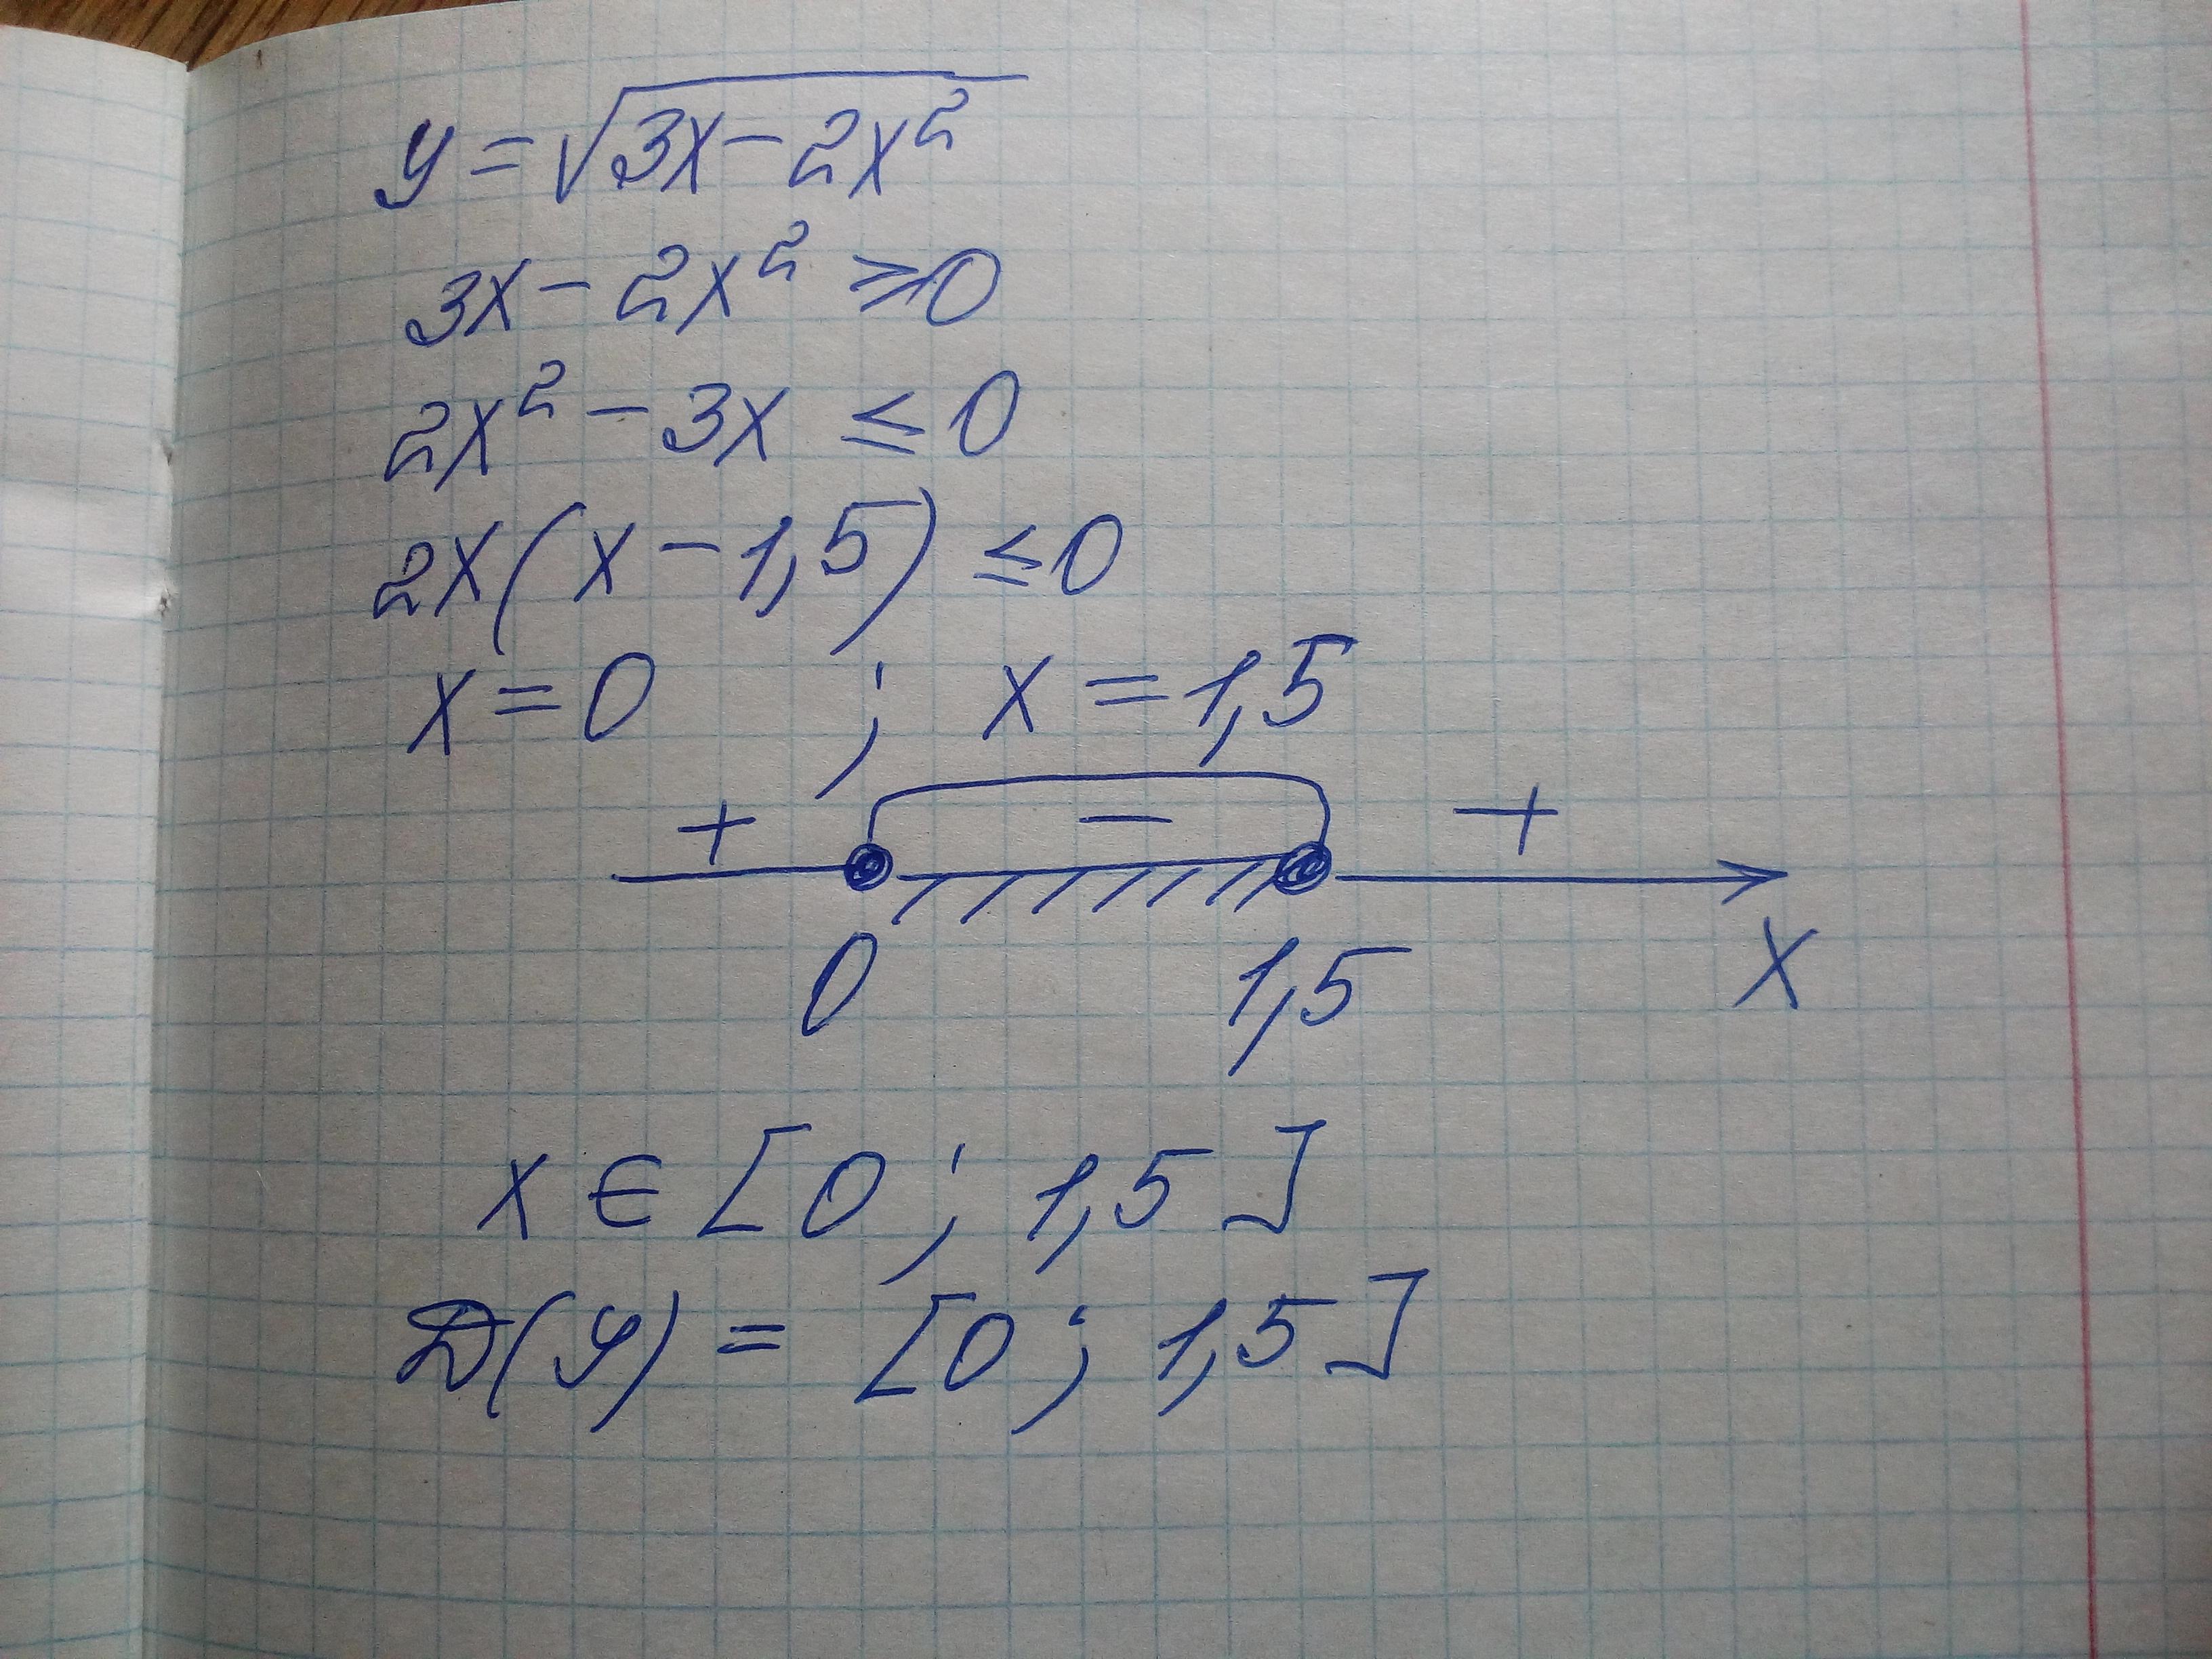 y = √3x - 2x²
3x - 2x² ≥ 0
2x² - 3x ≤ 0
2x(x - 1,5) ≤ 0
x = 0 ; x = 1,5
+ - +
0 1,5 x
x ∈ [0 ; 1,5]
D(y) = [0 ; 1,5]